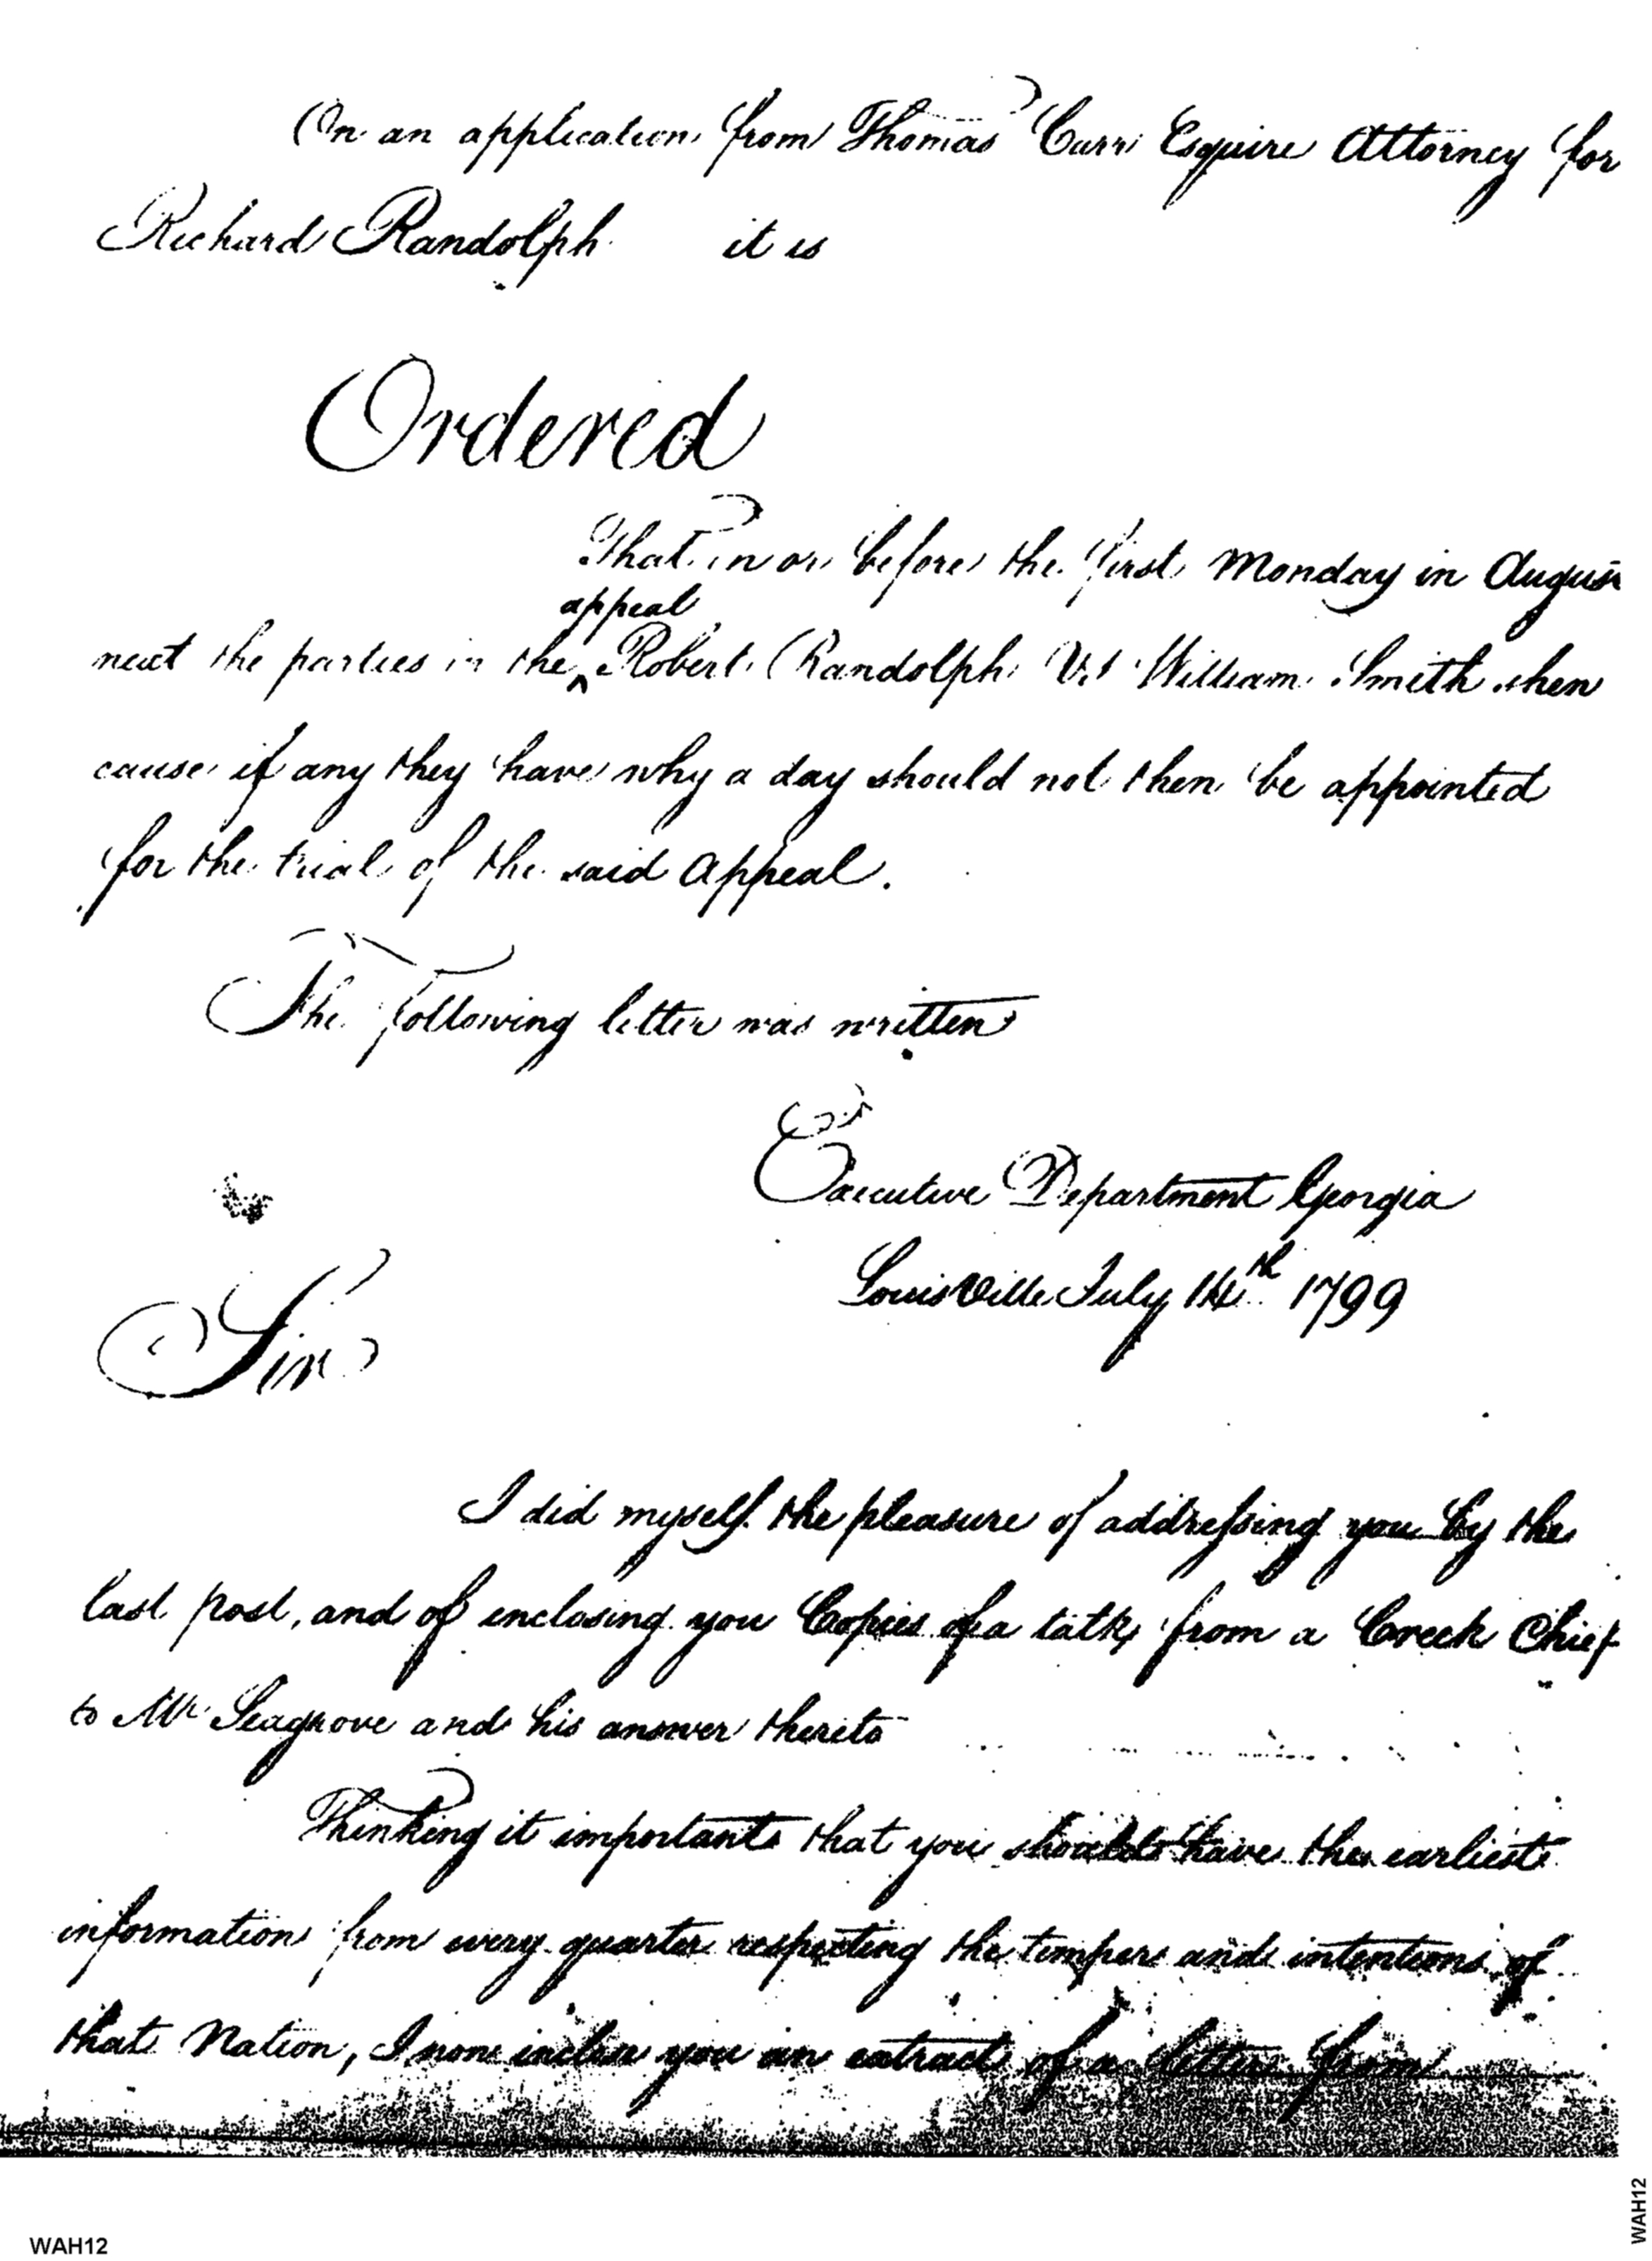 On an application from Thomas Carr Esquire Attorney for
Richard Randolph it is
Ordered
That in or before the first Monday in August
appeal
next the parties in the ^ Robert Randolph Vs William Smith shew
cause if any they have why a day should not then be appointed
for the trial of the said Appeal.
The following letter was written
Executive Department Georgia
LouisVille July 14th 1799
Sir
I did myself the pleasure of addressing you by the
last post, and of enclosing you Copies of a talk from a Creek Chief
to Mr Seagrove and his answer thereto
Thinking it important that you should have the earliest
information from every quarter respecting the temper and intentions of
that Nation, I now inclose you an extract of a letter from
WAH12
WAH12